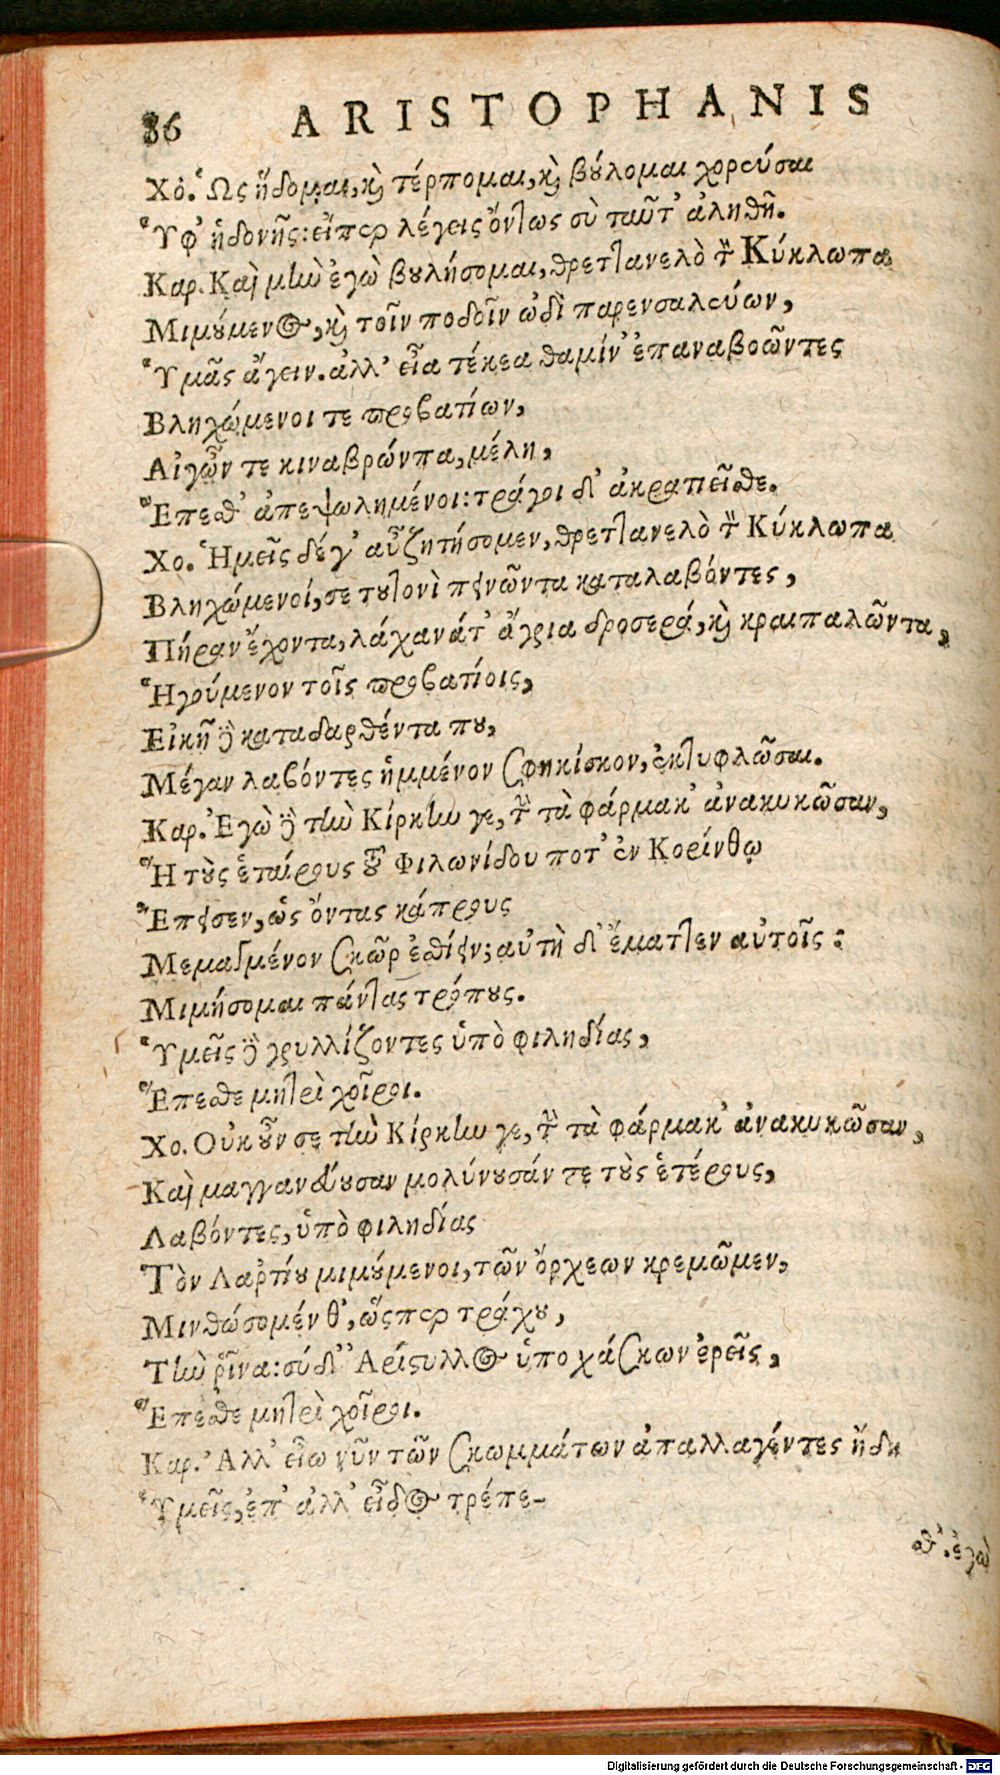 86 ARISTOPHANIS
Χό. Ὡς ἥδομαι, καὶ τέρπομαι, καὶ βούλομαι χορεύσαι
Ὑφ' ἡδονῆς: εἴπερ λέγεις ὄντως σὺ ταῦτ' ἀληθῆ.
Καρ. Καὶ μὴν ἐγὼ βουλήσομαι, θρετ]ανελὸ τὸν Κύκλωπα
Μιμούμενος, καὶ τοῖν ποδοῖν ὡδὶ παρενσαλεύων,
Ὑμᾶς ἄγειν. ἀλλ' εἶα τέκεα θαμίν' ἐπαναβοῶντες
Βληχώμενοι τε προβατίων,
Αἰγῶν τε κιναβρώντα, μέλη,
Ἕπεσθ' ἀπεψωλημένοι: τράγοι δ' ἀκρατιεῖσθε.
Χο. Ἡμεῖς δέ γ' αὖ ζητήσομεν, θρετ]ανελὸ τὸν Κύκλωπα
Βληχώμενοί, σε τουτονὶ πεινῶντα καταλαβόντες,
Πήραν ἔχοντα, λάχανάτ' ἄγρια δροσερά, καὶ κραιπαλῶντα,
Ἡγούμενον τοῖς προβατίοις,
Εἰκῆ δὲ καταδαρθέντα που,
Μέγαν λαβόντες ἡμμένον σφηκίσκον, ἐκτυφλῶσαι.
Καρ. Ἐγὼ δὲ τὴν Κίρκην γε, τὴν τὰ φάρμακ' ἀνακυκῶσαν,
Ἣ τοὺς ἑταίρους τοῦ Φιλωνίδου ποτ' ἐν Κορίνθῳ
Ἔπεισεν, ὡς ὄντας κάπρους
Μεμαγμένον σκῶρ ἐσθίειν; αὐτὴ δ' ἔματτεν αὐτοῖς:
Μιμήσομαι πάντας τρόπους.
Ὑμεῖς δὲ γρυλλίζοντες ὑπὸ φιληδίας,
Ἕπεσθε μητρὶ χοῖροι.
Χο. Οὐκοῦν σε τὴν Κίρκην γε, τὴν τὰ φάρμακ' ἀνακυκῶσαν,
Καὶ μαγγανεύουσαν μολύνουσάν τε τοὺς ἑτέρους,
Λαβόντες, ὑπὸ φιληδίας
Τὸν Λαρτίου μιμούμενοι, τῶν ὄρχεων κρεμῶμεν,
Μινθώσομέν θ', ὥσπερ τράγου,
Τὴν ῥῖνα: σύ δ' Ἀρίστυλλος ὑποχάσκων ἐρεῖς,
Ἕπεσθε μητρὶ χοῖροι.
Καρ. Ἀλλ' εἶω νῦν τῶν σκωμμάτων ἀπαλλαγέντες ἤδη
Ὑμεῖς, ἐπ' ἀλλ' εἶδος τρέπε-
σθ'. ἐγὼ
Digitalisierung gefördert durch die Deutsche Forschungsgemeinschaft - DFG